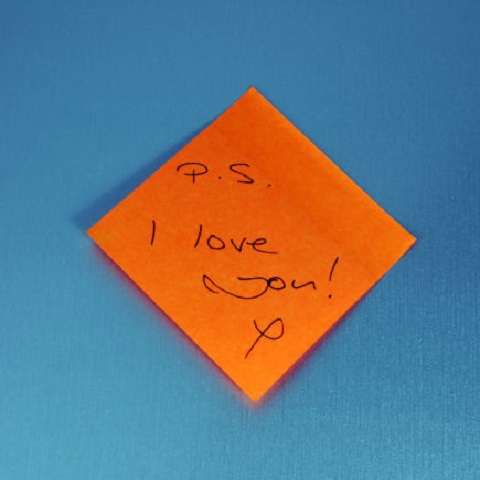 P.S.
I love
you!
x